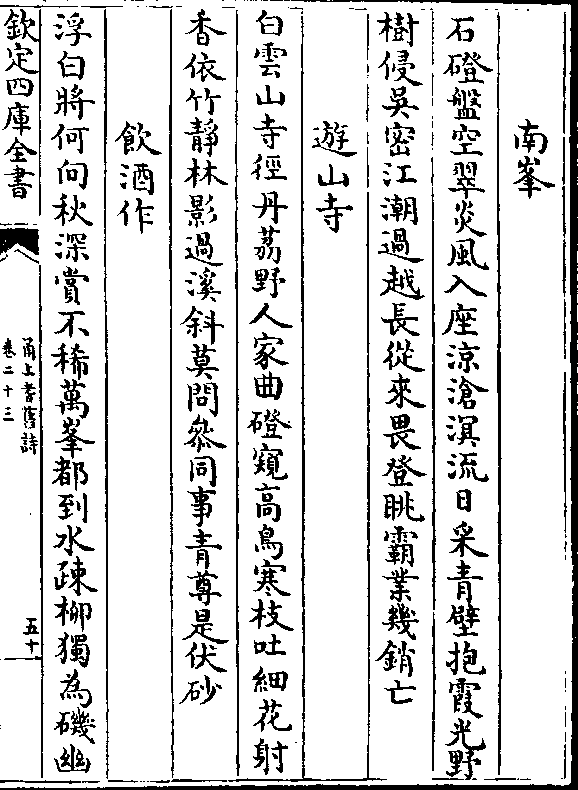 南峯
石磴盤空翠炎風入座涼滄溟流日采青壁抱霞光野
樹侵吳密江潮過越長從來畏登眺霸業幾銷亡
遊山寺
白雲山寺徑丹荔野人家曲磴窺高鳥寒枝吐細花射
香依竹靜林影過溪斜莫問叅同事青尊是伏砂
飲酒作
浮白將何向秋深賞不稀萬峯都到水疎柳獨為磯幽
欽定四庫全書
甬上耆舊詩
卷二十三
五十